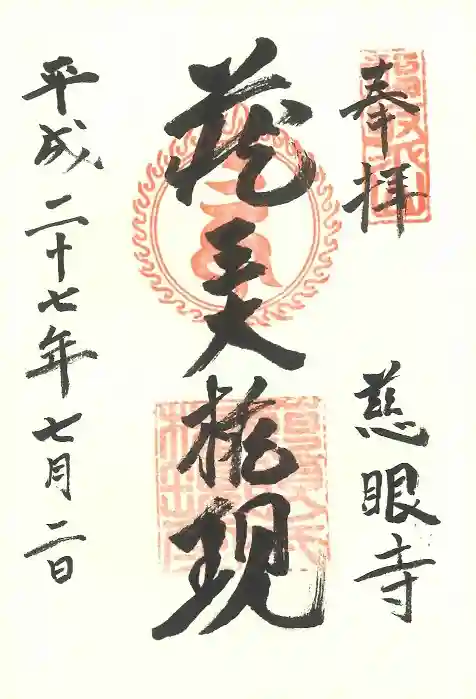 奉拝
慈眼寺
蔵王大権現
平成二十七年七月二日